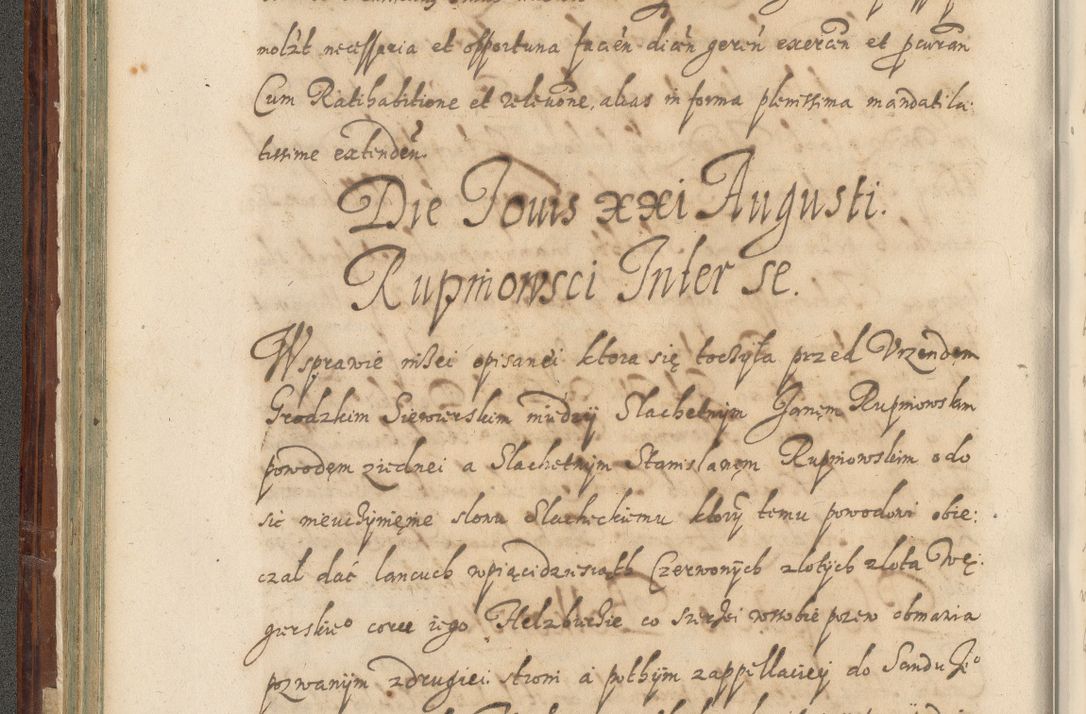 molẽt necessaria et opportuna facien̄ dicen̄ geren̄ exercen̄ et p̱curan̄
Cum Ratihabitione et releuõne, alias in forma plenissima mandati la:
tissime extenden̄.
Die Jouis xxi Augusti.
Rupniowsci Inter se.
W sprawie niżei opisanei ktora się toczyła przed Vrzendem
Grodzkim Siewierskim między Slachetnym Janem Rupniowskim
powodem z iednei a Slachetnym Stanislawem Rupniowskim o do
sic nieuczynięnie slowu Slacheckiemu ktory temu powodowi obie:
czał dać lancuch w piącidziesiąth Czerwonych złotych złota Wę:
gierskie⁰ corce iego Helzbiecie co szerzei w sobie pozew obmawia
pozwanym z drugiei stroni a pothym z appellaciey do Sandu J⁰